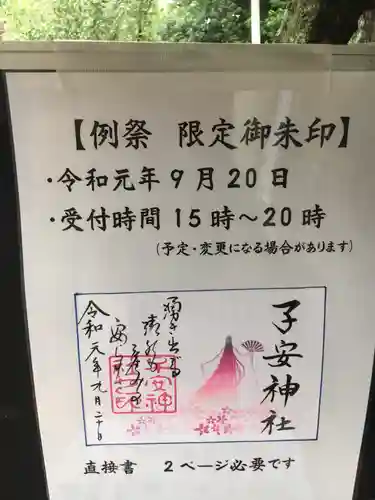 【例祭 限定御朱印】
・令和元年9月20日
・受付時間15時～20時
(予定・変更になる場合があります)
子安神社
湧き出づる
令和元年九月二十日
子安神社
直接書 2ページ必要です